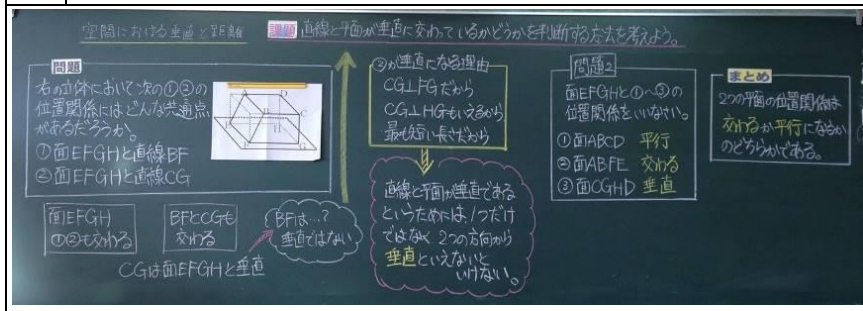 空間における垂直と距離
課題 直線と平面が垂直に交わっているかどうかを判断する方法を考えよう。
問題
右の立体において次の①②の
位置関係にはどんな共通点
があるだろうか。
①面EFGHと直線BF
②面EFGHと直線CG
A D
B C
E H
F G
面EFGH
①②も交わる
BFとCGも
交わる
BFは…?
垂直ではない
CGは面EFGHと垂直
②が垂直になる理由
CG⊥FGだから
CG⊥HGもいえるから
最も短い長さだから
直線と平面が垂直である
というためには、1つだけ
ではなく2つの方向から
垂直といえないと
いけない。
問題2
面EFGHと①~③の
位置関係をいいなさい。
①面ABCD 平行
②面ABFE 交わる
③面CGHD 垂直
まとめ
2つの平面の位置関係は
交わるか平行になるか
のどちらかである。